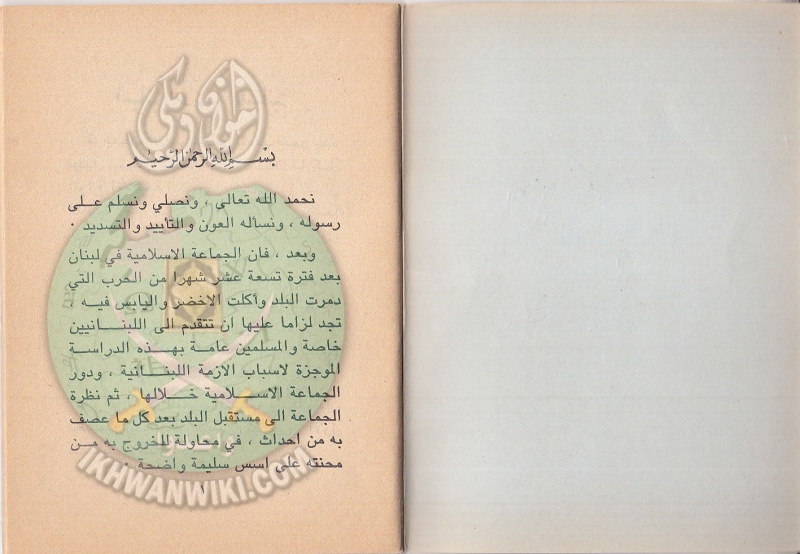 اخوان ويكي
بسم الله الرحمن الرحيم
نحمد الله تعالى ، ونصلي ونسلم على
رسوله ، ونسأله العون والتأييد والتسديد ٠
وبعد ، فان الجماعة الاسلامية في لبنان
بعد فترة تسعة عشر شهرا من الحرب التي
دمرت البلد وأكلت الاخضر واليابس فيه ،
تجد لزاما عليها ان تتقدم الى اللبنانيين
خاصة والمسلمين عامة بهذه الدراسة
الموجزة لاسباب الازمة اللبنانية ، ودور
الجماعة الاسلامية خلالها ، ثم نظرة
الجماعة الى مستقبل البلد بعد كل ما عصف
به من احداث ، في محاولة للخروج به من
محنته على اسس سليمة واضحة ٠
١
IKHWANWIKI.COM